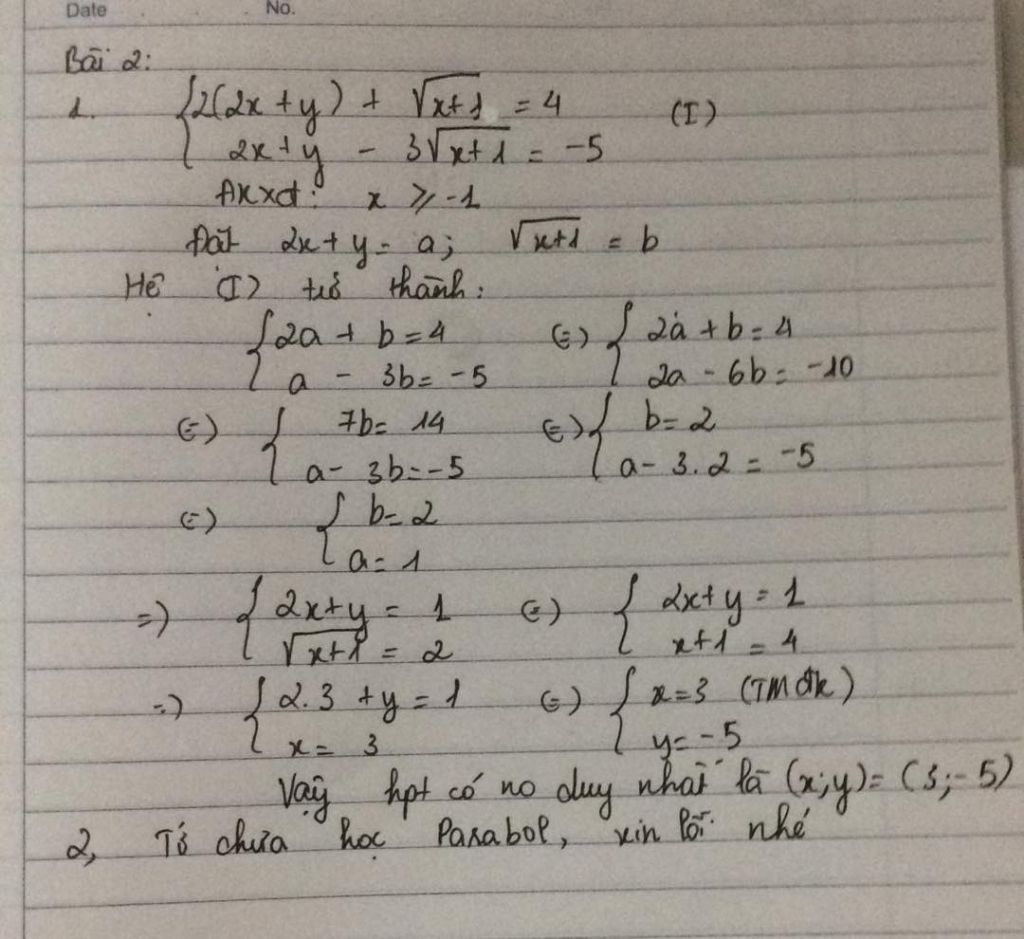 Date No.
Bài 2:
1. { 2(2x+y) + √x+1 = 4 (I)
2x+y - 3√x+1 = -5
ĐKXĐ: x ⩾ -1
Đặt 2x+y = a; √x+1 = b
Hệ (I) trở thành:
{ 2a + b = 4 (=) { 2a + b = 4
a - 3b = -5 2a - 6b = -10
(=) { 7b = 14 (=) { b = 2
a - 3b = -5 a - 3.2 = -5
(=) { b = 2
a = 1
=) { 2x+y = 1 (=) { 2x+y = 1
√x+1 = 2 x+1 = 4
=) { 2.3 + y = 1 (=) { x=3 (TMđk)
x = 3 y = -5
Vậy hpt có no duy nhất là (x;y) = (3;-5)
2, Tớ chưa học Parabol, xin lỗi nhé